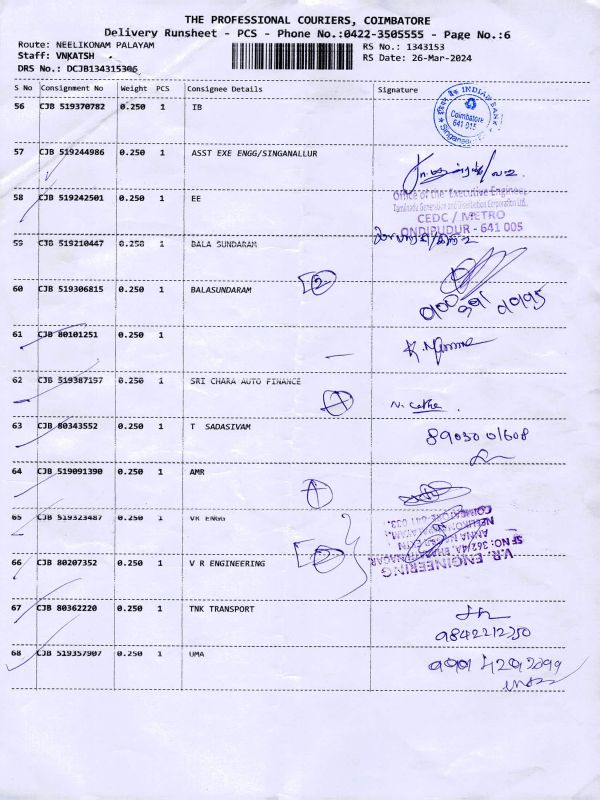 THE PROFESSIONAL COURIERS, COIMBATORE
Delivery Runsheet - PCS - Phone No.:0422-3505555 - Page No.:6
Route: NEELIKONAM PALAYAM
RS No.: 1343153
Staff: VNKATSH
RS Date: 26-Mar-2024
DRS No.: DCJB134315306
S No Consignment No Weight PCS Consignee Details Signature
56 CJB 519370782 0.250 1 IB
INDIAN BANK
Coimbatore
641 015
57 CJB 519244986 0.250 1 ASST EXE ENGG/SINGANALLUR
58 CJB 519242501 0.250 1 EE
Office of the Executive Engineer
Tamilnadu Generation and Distribution Corporation Ltd.,
CEDC / METRO
ONDIPUDUR - 641 005
59 CJB 519210447 0.250 1 BALA SUNDARAM
60 CJB 519306815 0.250 1 BALASUNDARAM 2
61 CJB 80101251 0.250 1
62 CJB 519387197 0.250 1 SRI CHARA AUTO FINANCE
63 CJB 80343552 0.250 1 T SADASIVAM
89030 01608
64 CJB 519091390 0.250 1 AMR
65 CJB 519323487 0.250 1 VR ENGG
66 CJB 80207352 0.250 1 V R ENGINEERING 2
V.R. ENGINEERING
67 CJB 80362220 0.250 1 TNK TRANSPORT
9842212250
68 CJB 519357907 0.250 1 UMA